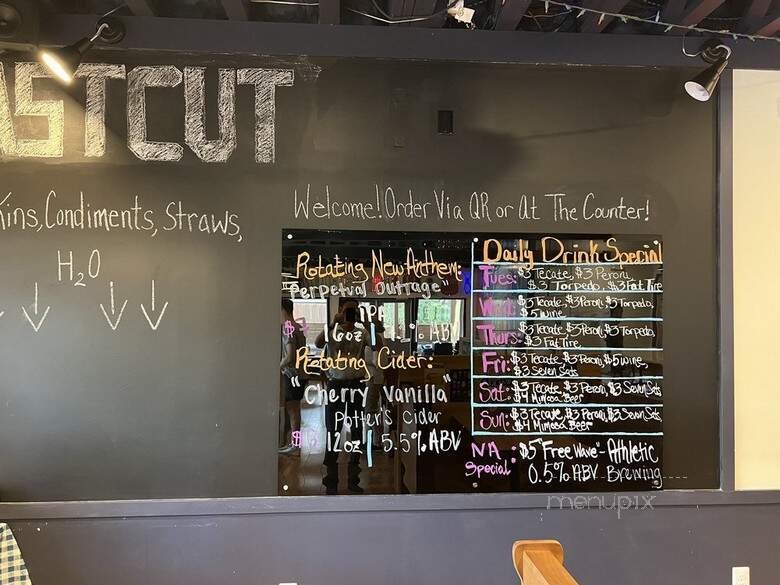 ASTCUT
kins, Condiments, Straws,
H2O
Welcome! Order Via QR or at The Counter!
Rotating New Anthem:
"Perpetual Outrage"
IPA
16oz % ABV
Rotating Cider:
"Cherry Vanilla"
Potter's Cider
12oz | 5.5% ABV
Daily Drink Special
Tues: $3 Tecate, $3 Peroni,
$3 Torpedo, $3 Fat Tire
Wed: $3 Tecate, $3 Peroni, $3 Torpedo,
$5 Wine
Thurs: $3 Tecate, $3 Peroni, $3 Torpedo,
$3 Fat Tire,
Fri: $3 Tecate, $3 Peroni, $5 wine,
$3 Seven Sats
Sat: $3 Tecate, $3 Peroni, $3 Seven Sats
$4 Mimosa Beer
Sun: $3 Tecate, $3 Peroni, $3 Seven Sats
$4 Mimosa Beer
NA Special: $5 "Free Wave" - Athletic
0.5% ABV Brewing
menupix